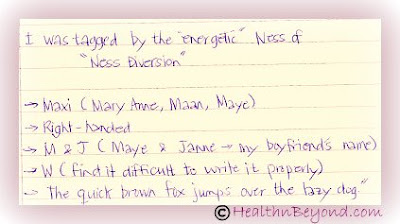 I was tagged by the "energetic" Ness of
"Ness Diversion"
→ Maxi (Mary Anne, Maan, Maye)
→ Right-handed
→ M & J (Maye & Janne → my boyfriend's name)
→ W (find it difficult to write it properly)
→ The quick brown fox jumps over the lazy dog."
©HealthnBeyond.com